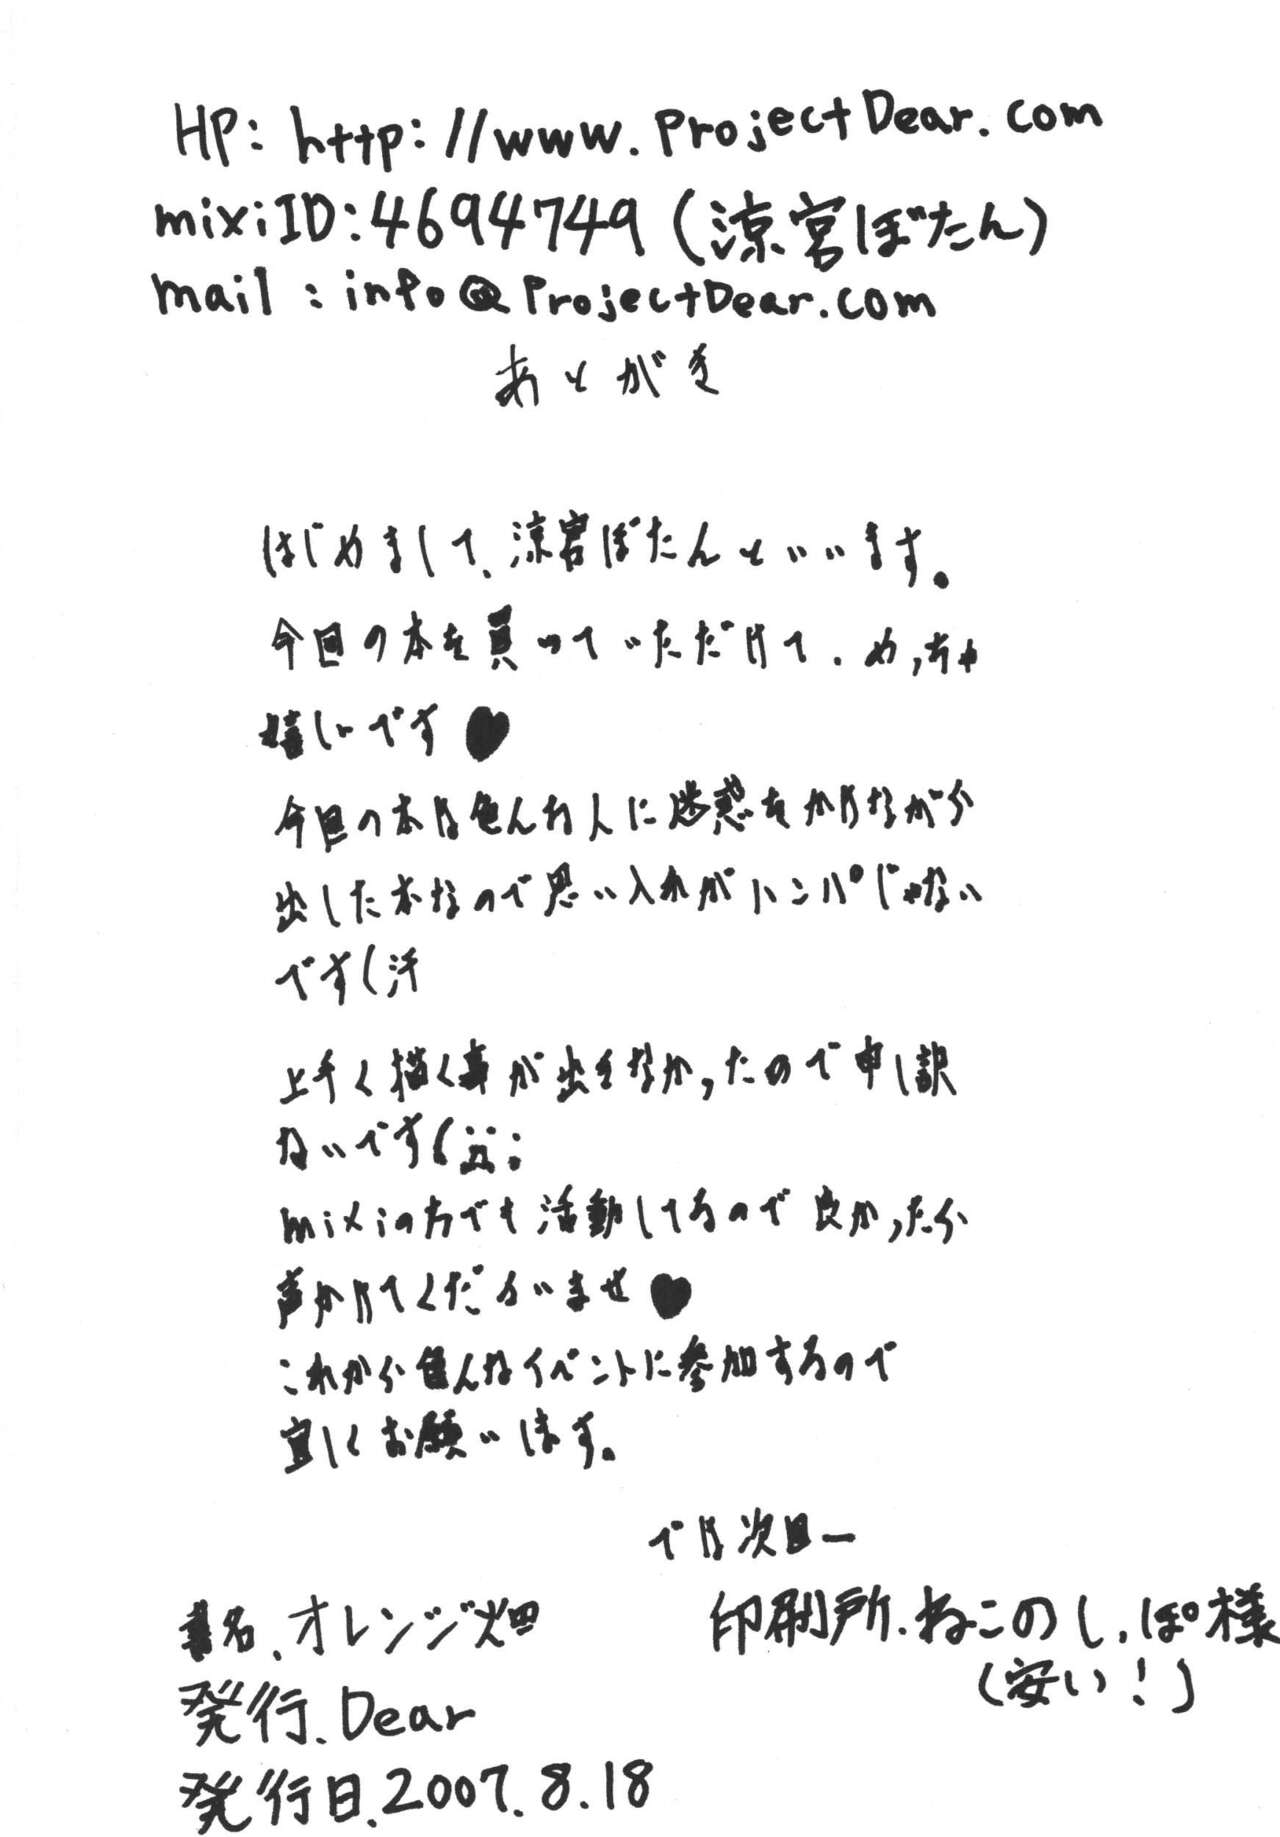 HP: http://www.ProjectDear.com
mixiID:4694749(涼宮ぼたん)
mail : info@ProjectDear.com
あとがき
はじめまして、涼宮ぼたんといいます。
今回の本を買っていただけて、めっちゃ
嬉しいです♥
今回の本は色んな人に迷惑をかけながら
出した本なので思い入れがハンパじゃない
です(汗
上手く描く事が出きなかったので申し訳
ないです(;
mixiの方でも活動してるので良かったら
声かけてくださいませ♥
これから色んなイベントに参加するので
宜しくお願いします。
では次回ー
書名、オレンジ畑
印刷所、ねこのしっぽ様
(安い!)
発行、Dear
発行日、2007.8.18